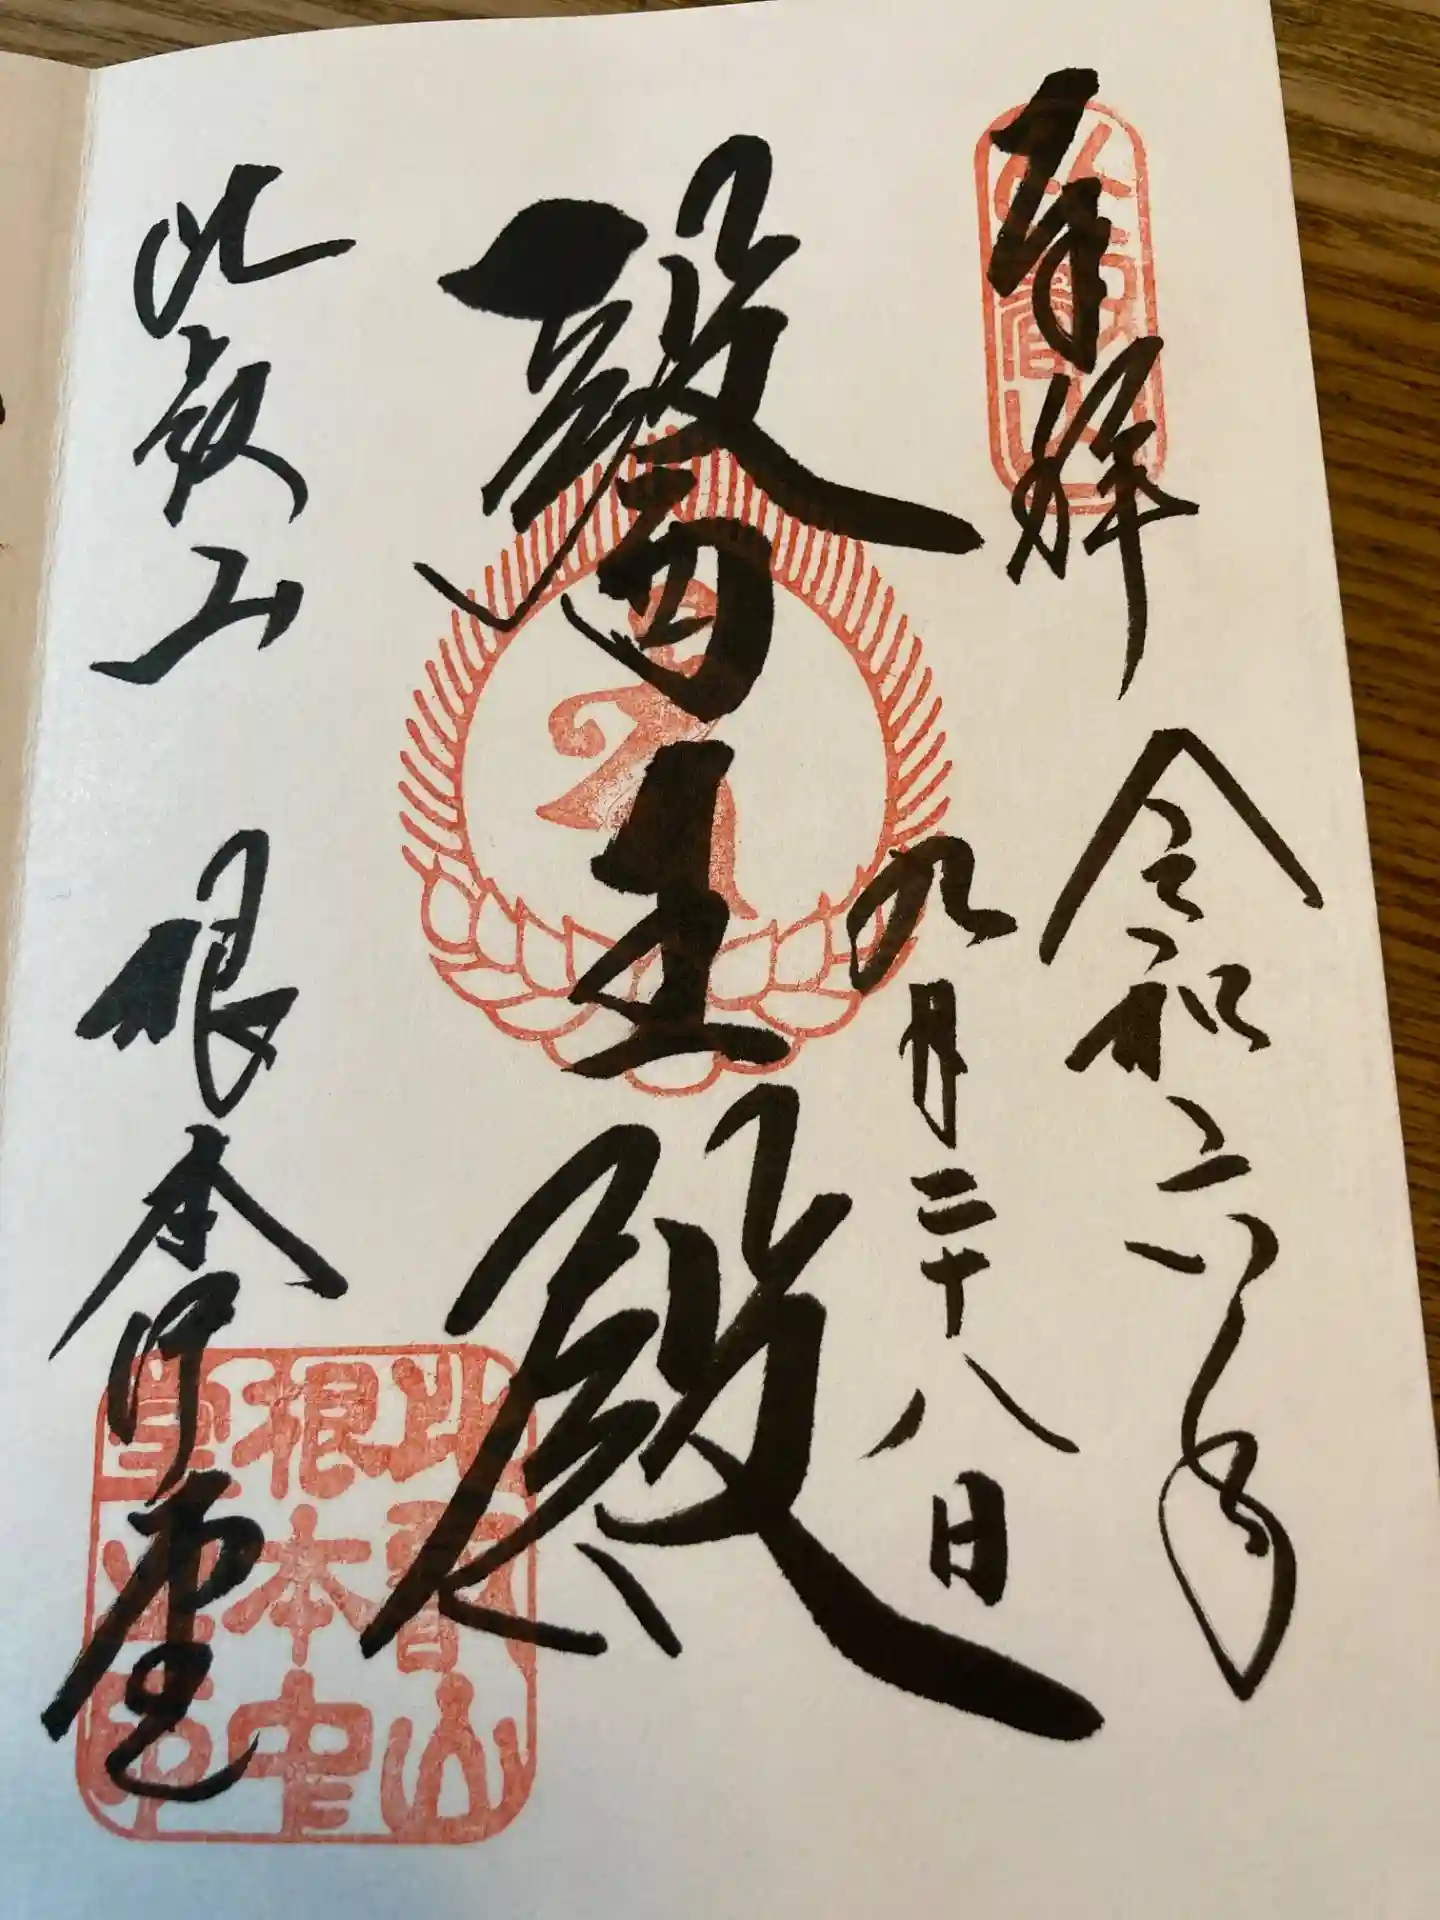 奉拝
令和六年
九月二十八日
醫王殿
比叡山 根本中堂
比叡山
根本中
堂之印